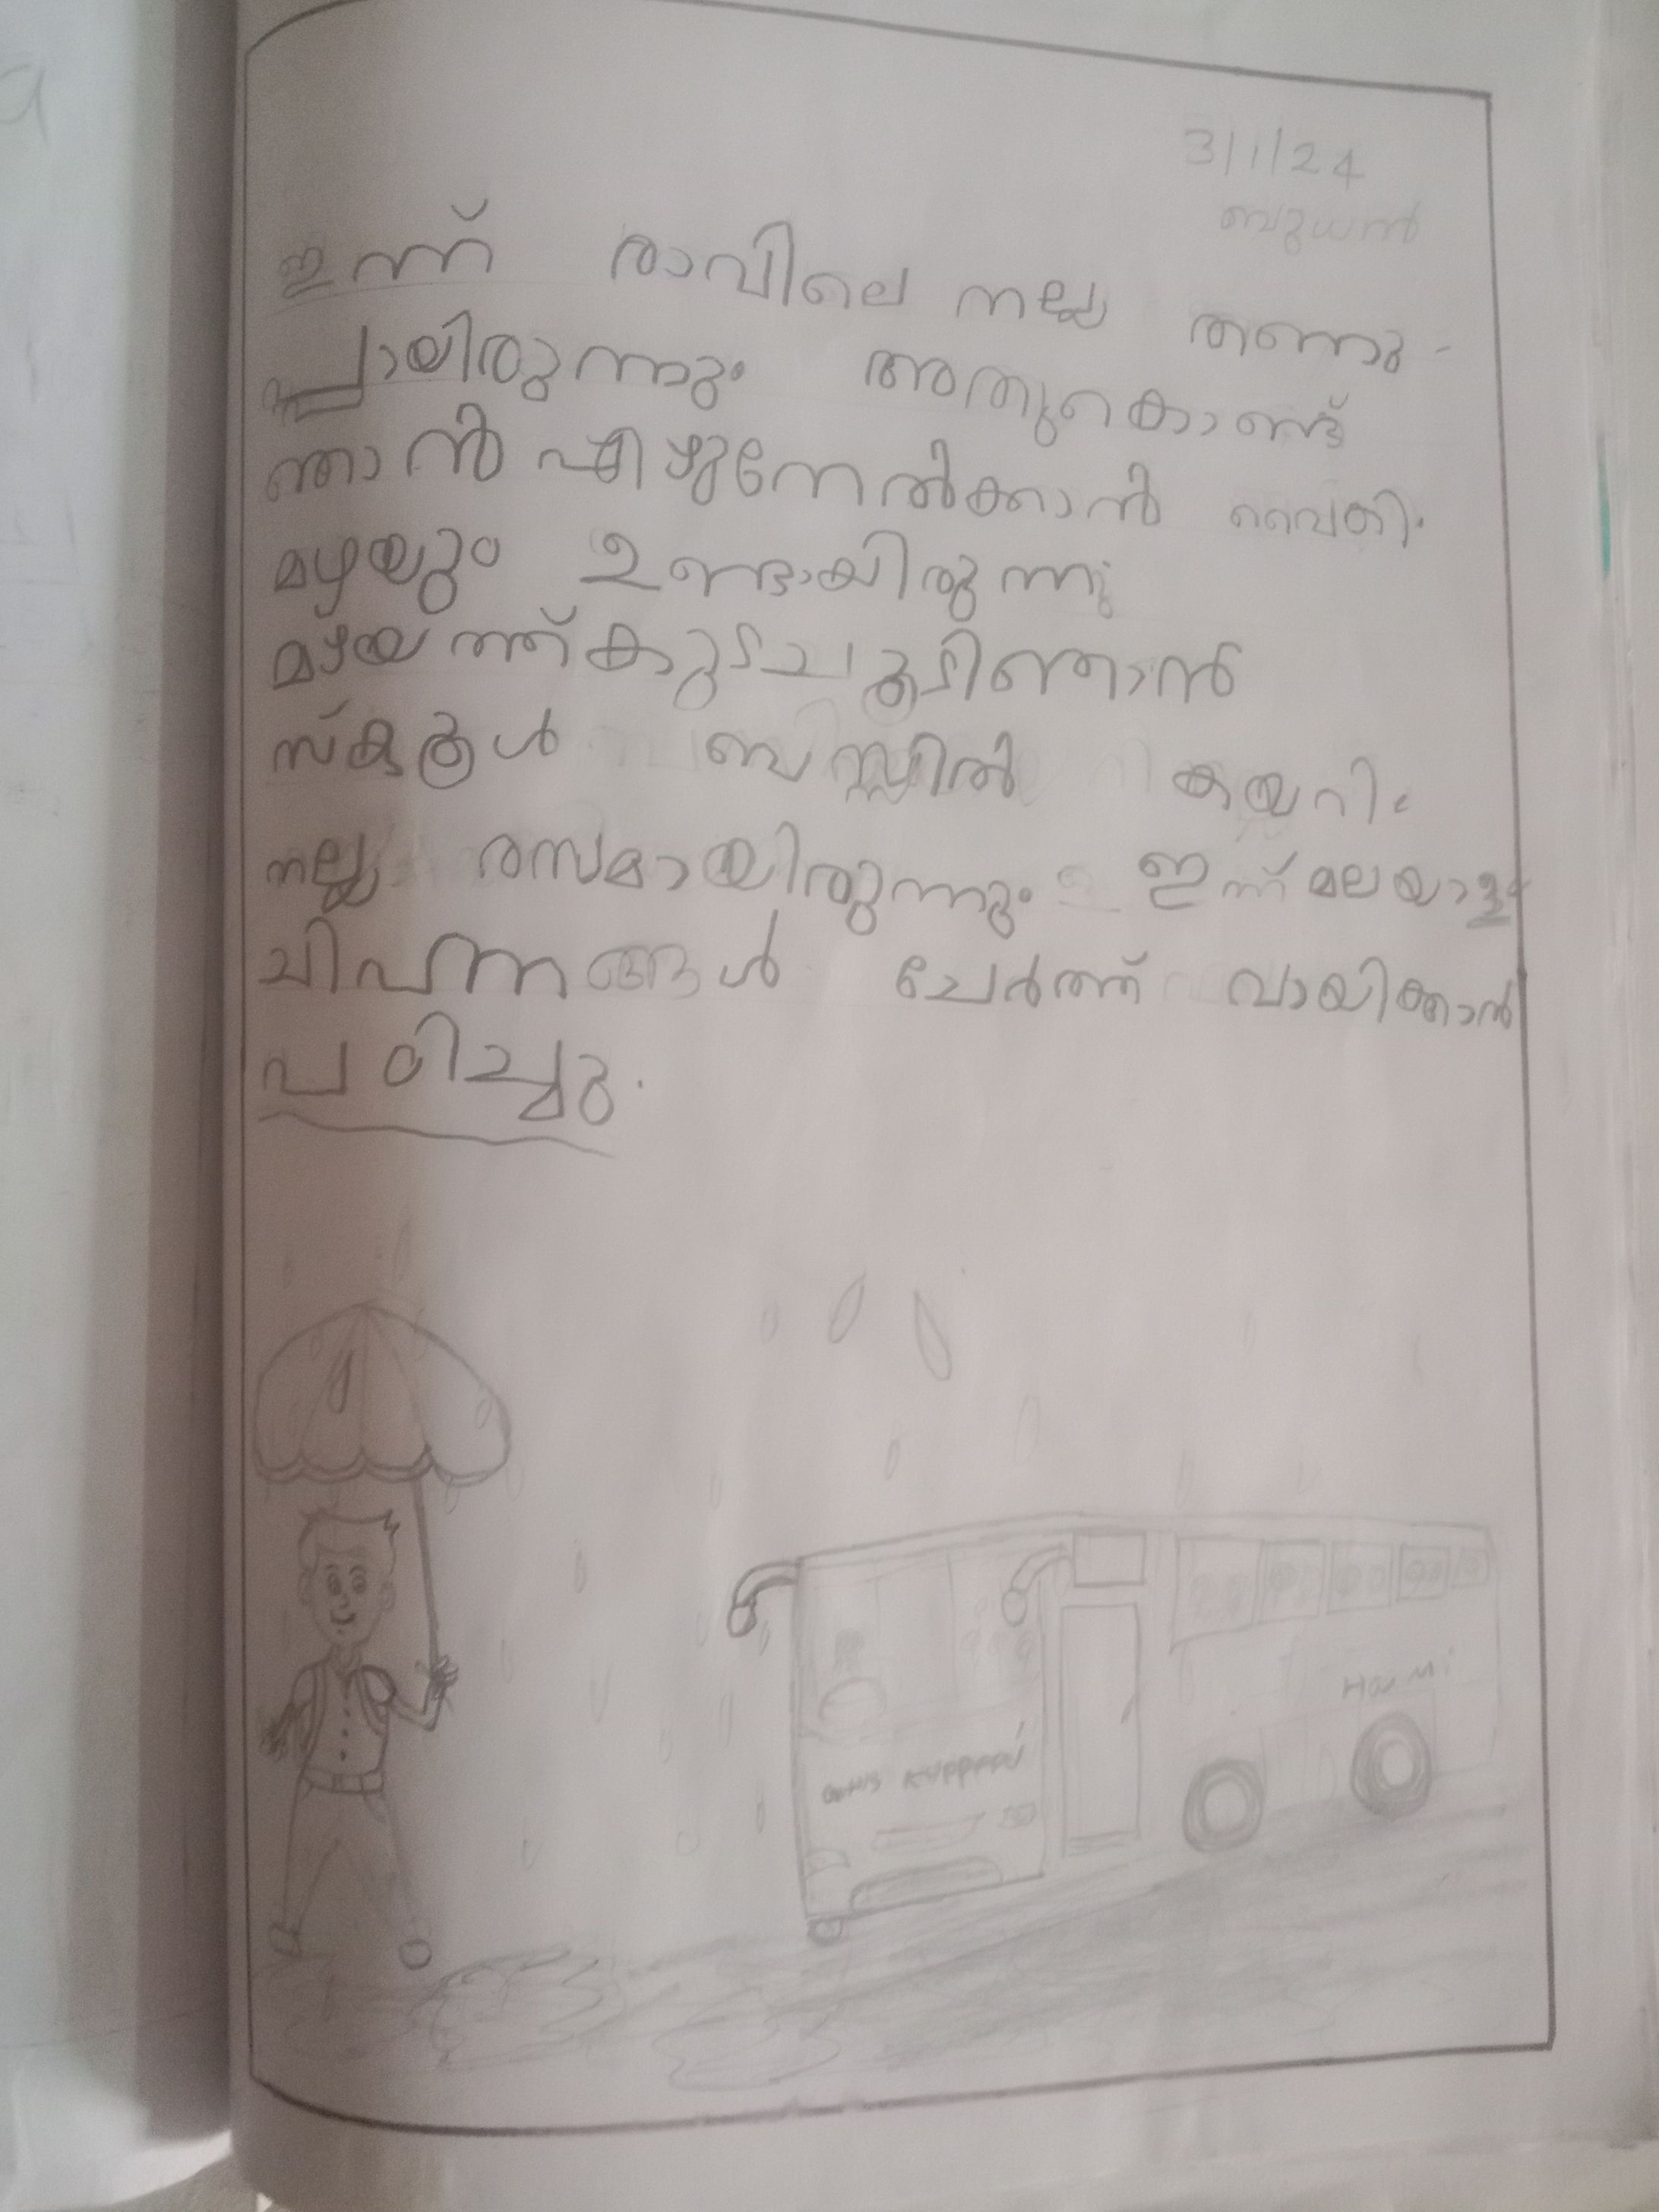 3/1/24
ബുധൻ
ഇന്ന് രാവിലെ നല്ല തണു-
പ്പായിരുന്നു. അതുകൊണ്ട്
ഞാൻ എഴുന്നേൽക്കാൻ വൈകി.
മഴയും ഉണ്ടായിരുന്നു
മഴയത്ത് കുടചൂടി ഞാൻ
സ്കൂൾ ബസ്സിൽ കയറി.
നല്ല രസമായിരുന്നു. ഇന്ന് മലയാള
ചിഹ്നങ്ങൾ ചേർത്ത് വായിക്കാൻ
പഠിച്ചു.